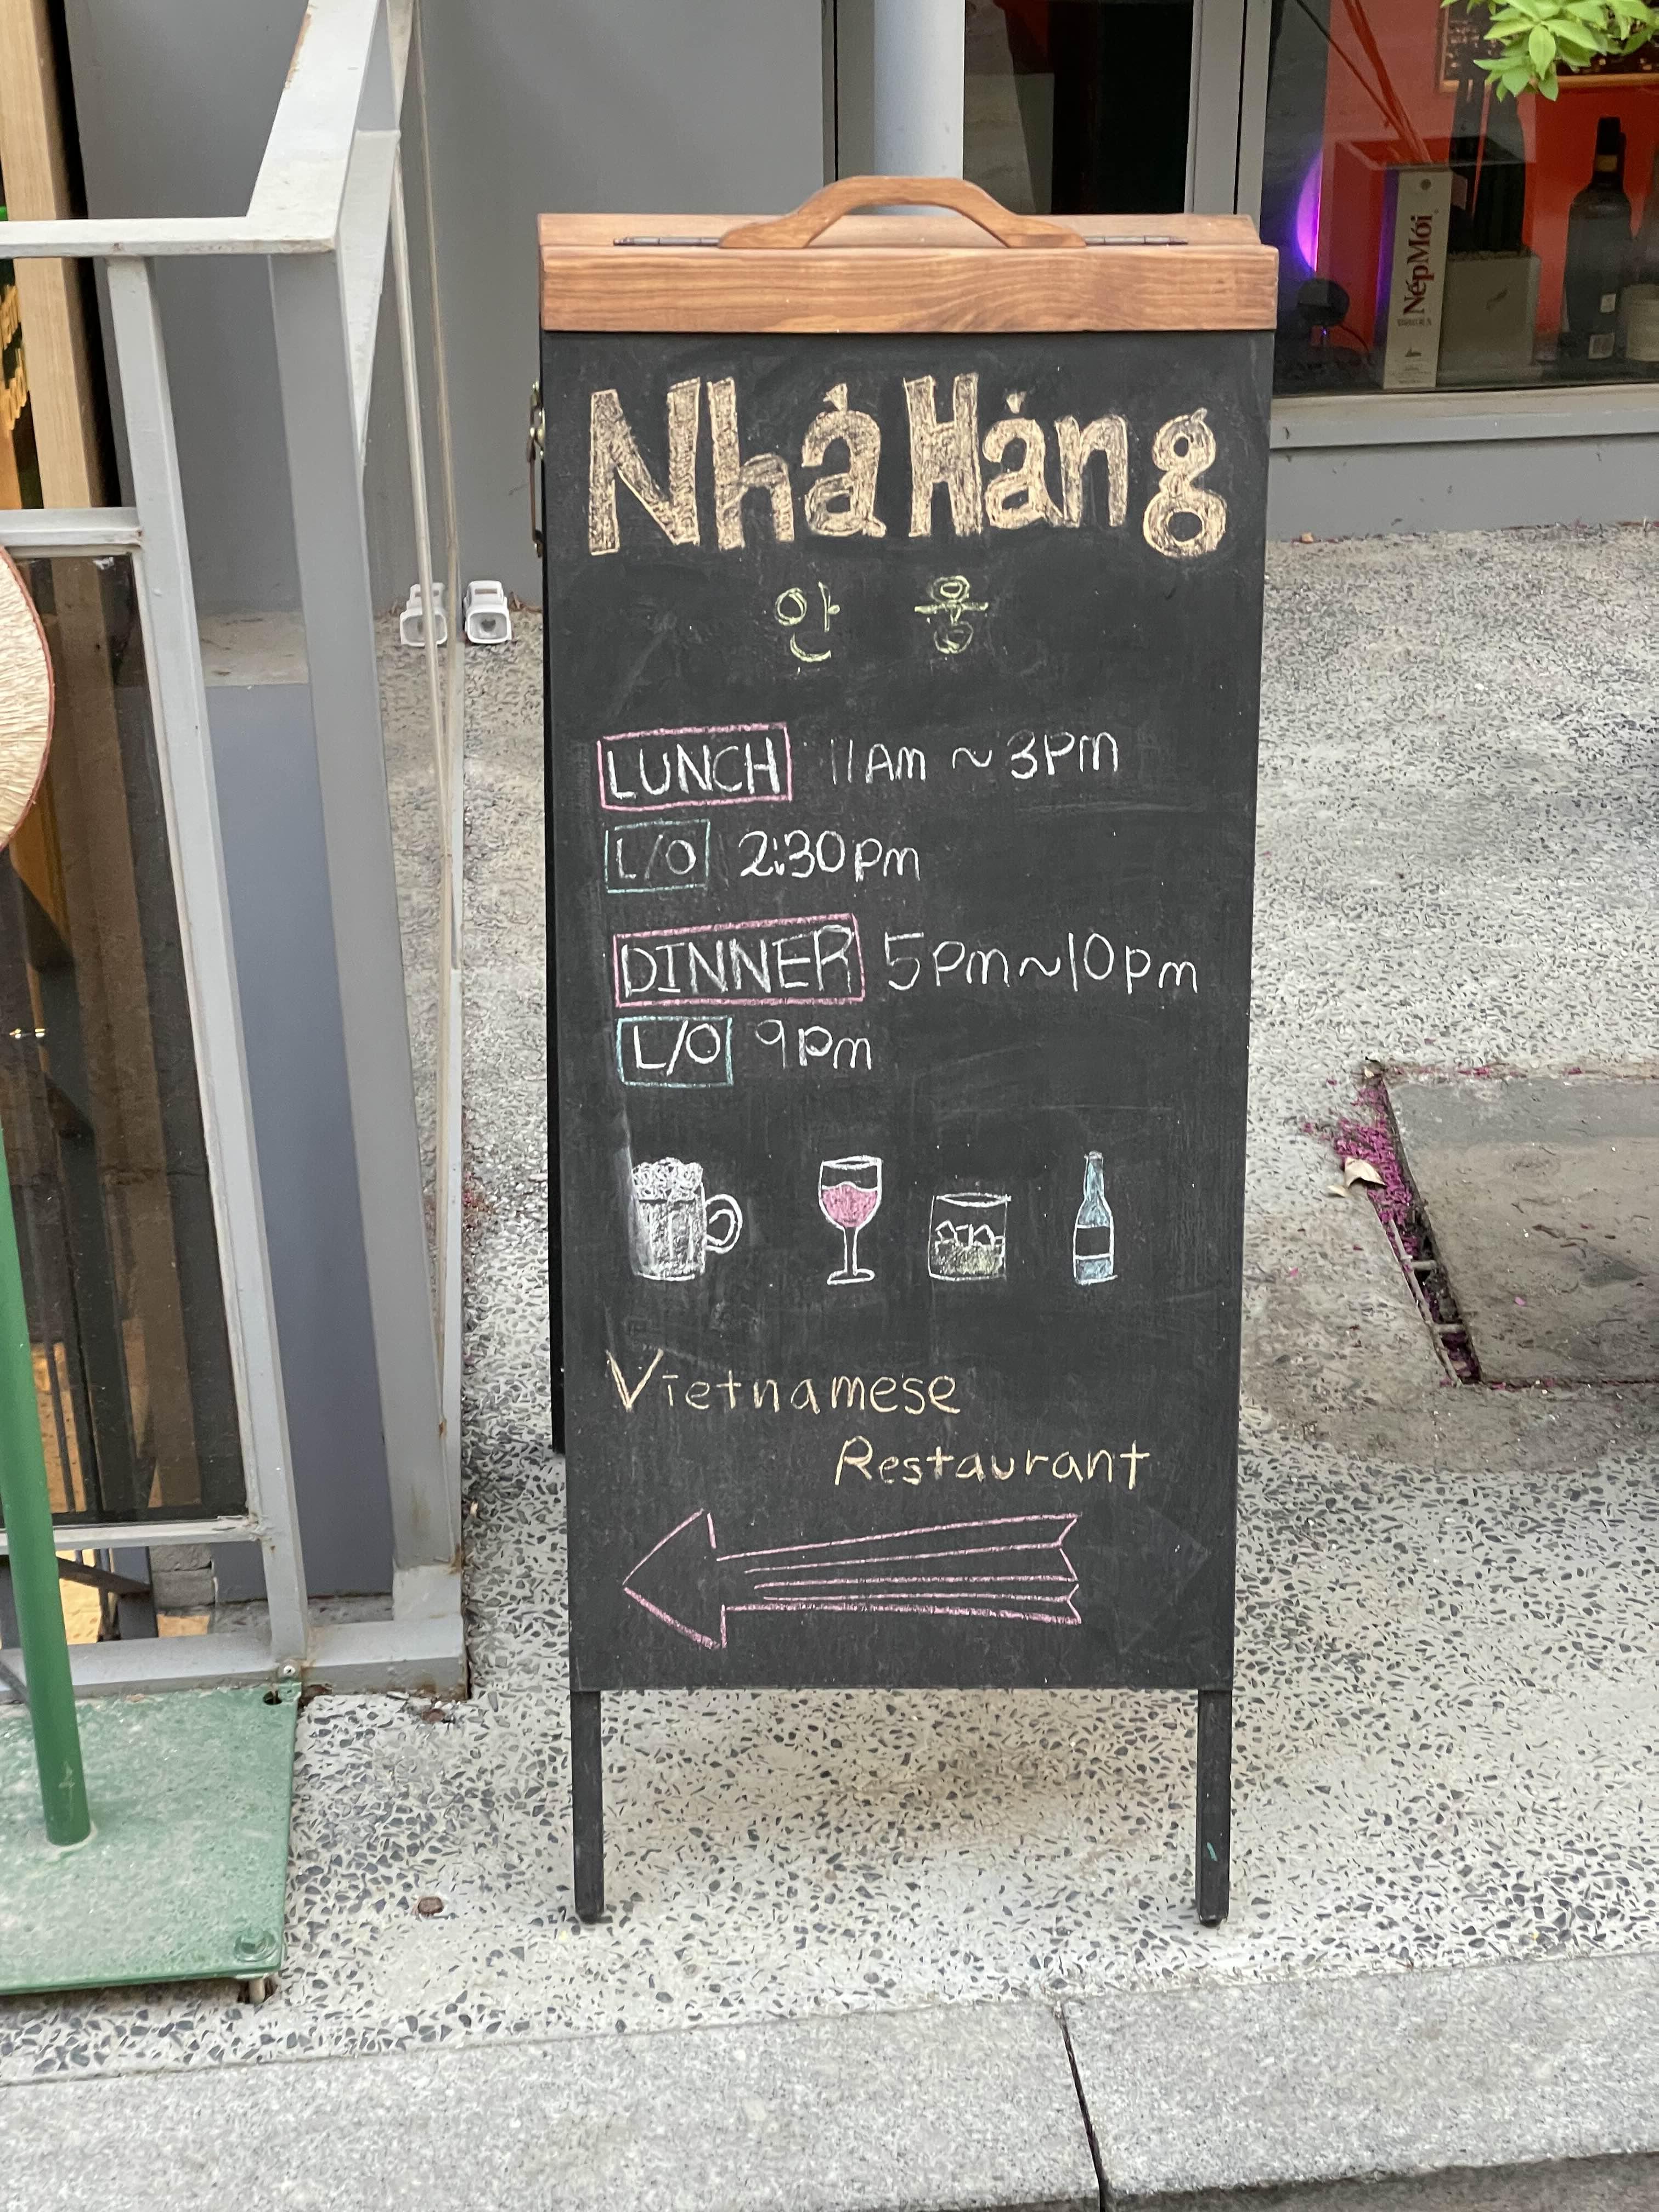 Nhà Hàng
안 웅
LUNCH 11Am ~ 3Pm
L/O 2:30pm
DINNER 5pm~10pm
L/O 9Pm
Vietnamese
Restaurant
NépMới